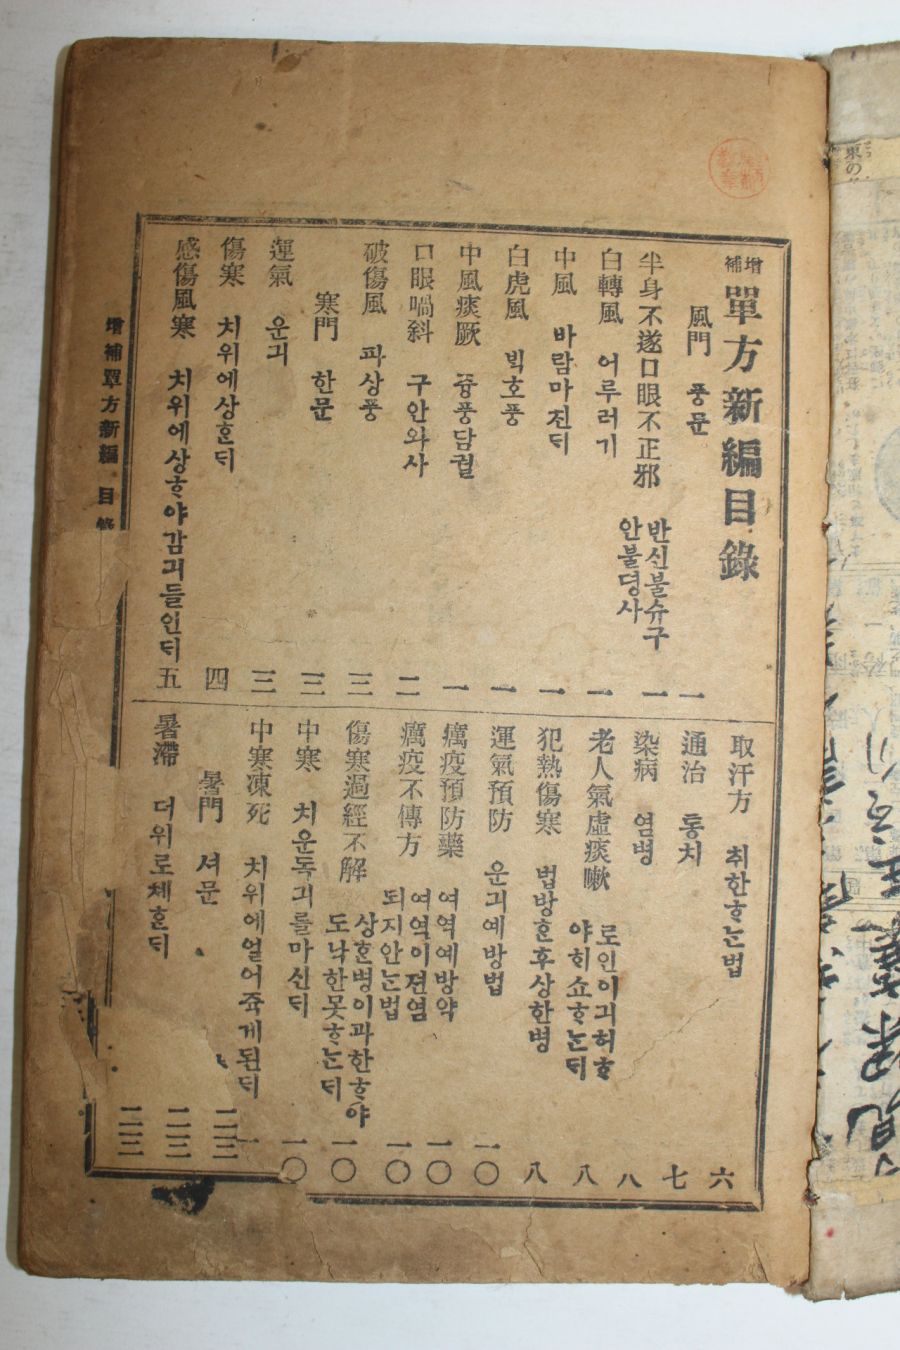 增補 單方新編目錄
風門 풍문 一
半身不遂口眼不正邪 반신불슈구안불뎡사 一
白轉風 어루러기 一
中風 바람마진ᄃᆡ 一
白虎風 ᄇᆡᆨ호풍 一
中風痰厥 즁풍담궐 一
口眼喎斜 구안와사 二
破傷風 파상풍 三
寒門 한문 三
運氣 운긔 三
傷寒 치위에상ᄒᆞᆫᄃᆡ 四
感傷風寒 치위에상ᄒᆞ야감긔들인ᄃᆡ 五
取汗方 취한ᄒᆞᄂᆞᆫ법 六
通治 통치 七
染病 염병 八
老人氣虛痰嗽 로인이긔허ᄒᆞ야ᄒᆡ쇼ᄒᆞᄂᆞᆫᄃᆡ 八
犯熱傷寒 법방ᄒᆞᆫ후상한병 八
運氣預防 운긔예방법 一〇
癘疫預防藥 여역예방약 一〇
癘疫不傳方 여역이젼염되지안ᄂᆞᆫ법 一〇
傷寒過經不解 상ᄒᆞᆫ병이과한ᄒᆞ야도낙한못ᄒᆞᄂᆞᆫᄃᆡ 一〇
中寒 치운독긔를마신ᄃᆡ 一〇
中寒凍死 치위에얼어쥭게된ᄃᆡ 一
暑門 셔문 二三
暑滯 더위로체ᄒᆞᆫᄃᆡ 二三
二三
增補單方新編 目